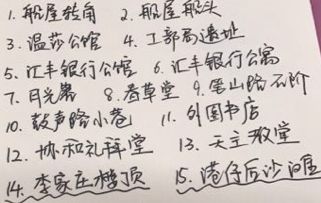 1. 船屋转角 2. 船屋船头
3. 温莎公馆 4. 工部局遗址
5. 汇丰银行公馆 6. 汇丰银行公寓
7. 月光岩 8. 春草堂 9. 笔山路石阶
10. 鼓声路小巷 11. 外图书店
12. 协和礼拜堂 13. 天主教堂
14. 李家庄楼顶 15. 港仔后沙滩